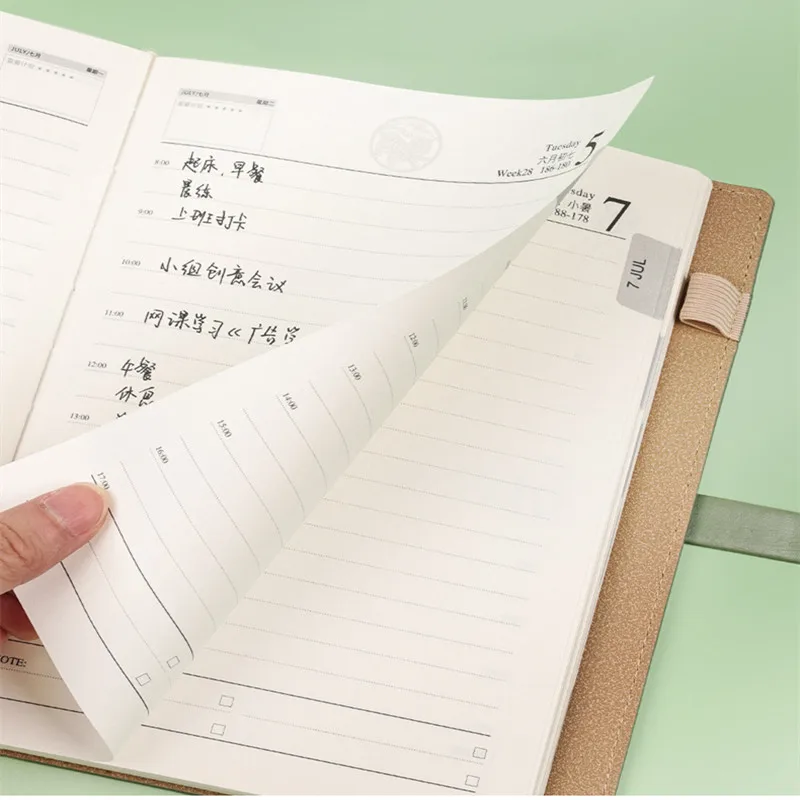 JULY/七月 星期一
JULY/七月 星期二
Tuesday 5
六月初七
Week28 186-180
8:00 起床,早餐
晨练
9:00 上班打卡
10:00 小组创意会议
11:00 网课学习《广告学
12:00 午餐
休息
13:00
12:00
13:00
14:00
15:00
16:00
17:00
sday 7
小暑
88-178
7 JUL
OTE: